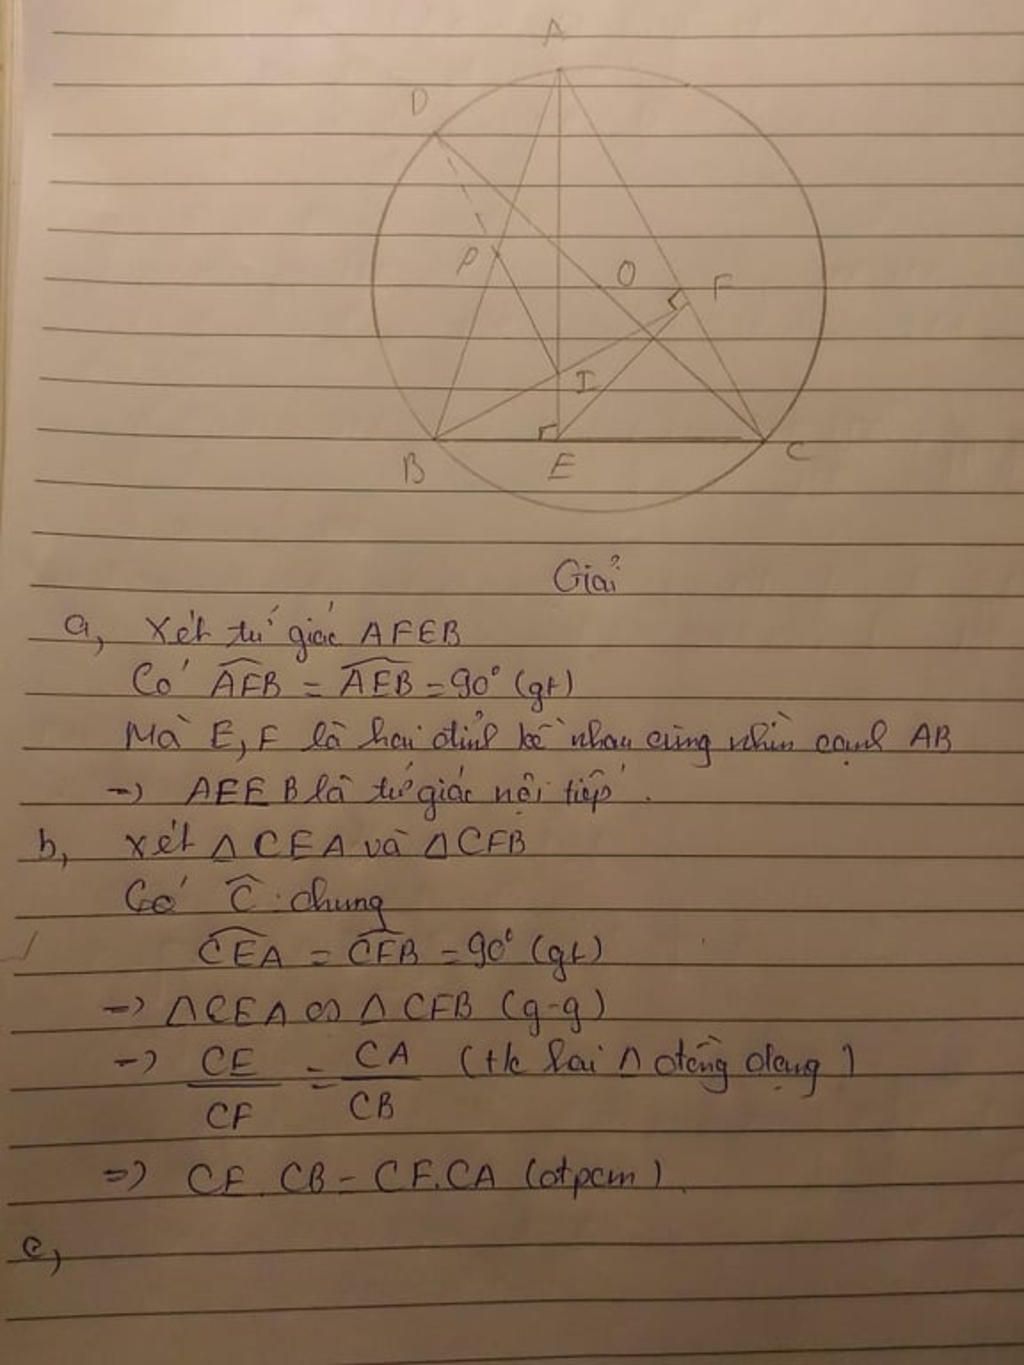 A
D
P
O
F
I
B
E
C
Giải
a, Xét tứ giác AFEB
Có AFB = AEB = 90° (gt)
Mà E, F là hai đỉnh kề nhau cùng nhìn cạnh AB
=> AFEB là tứ giác nội tiếp.
b, Xét △CEA và △CFB
Có C: chung
CEA = CFB = 90° (gt)
=> △CEA ∽ △CFB (g-g)
=> CE/CF = CA/CB (t/c hai △ đồng dạng)
=> CE.CB = CF.CA (đpcm).
c,